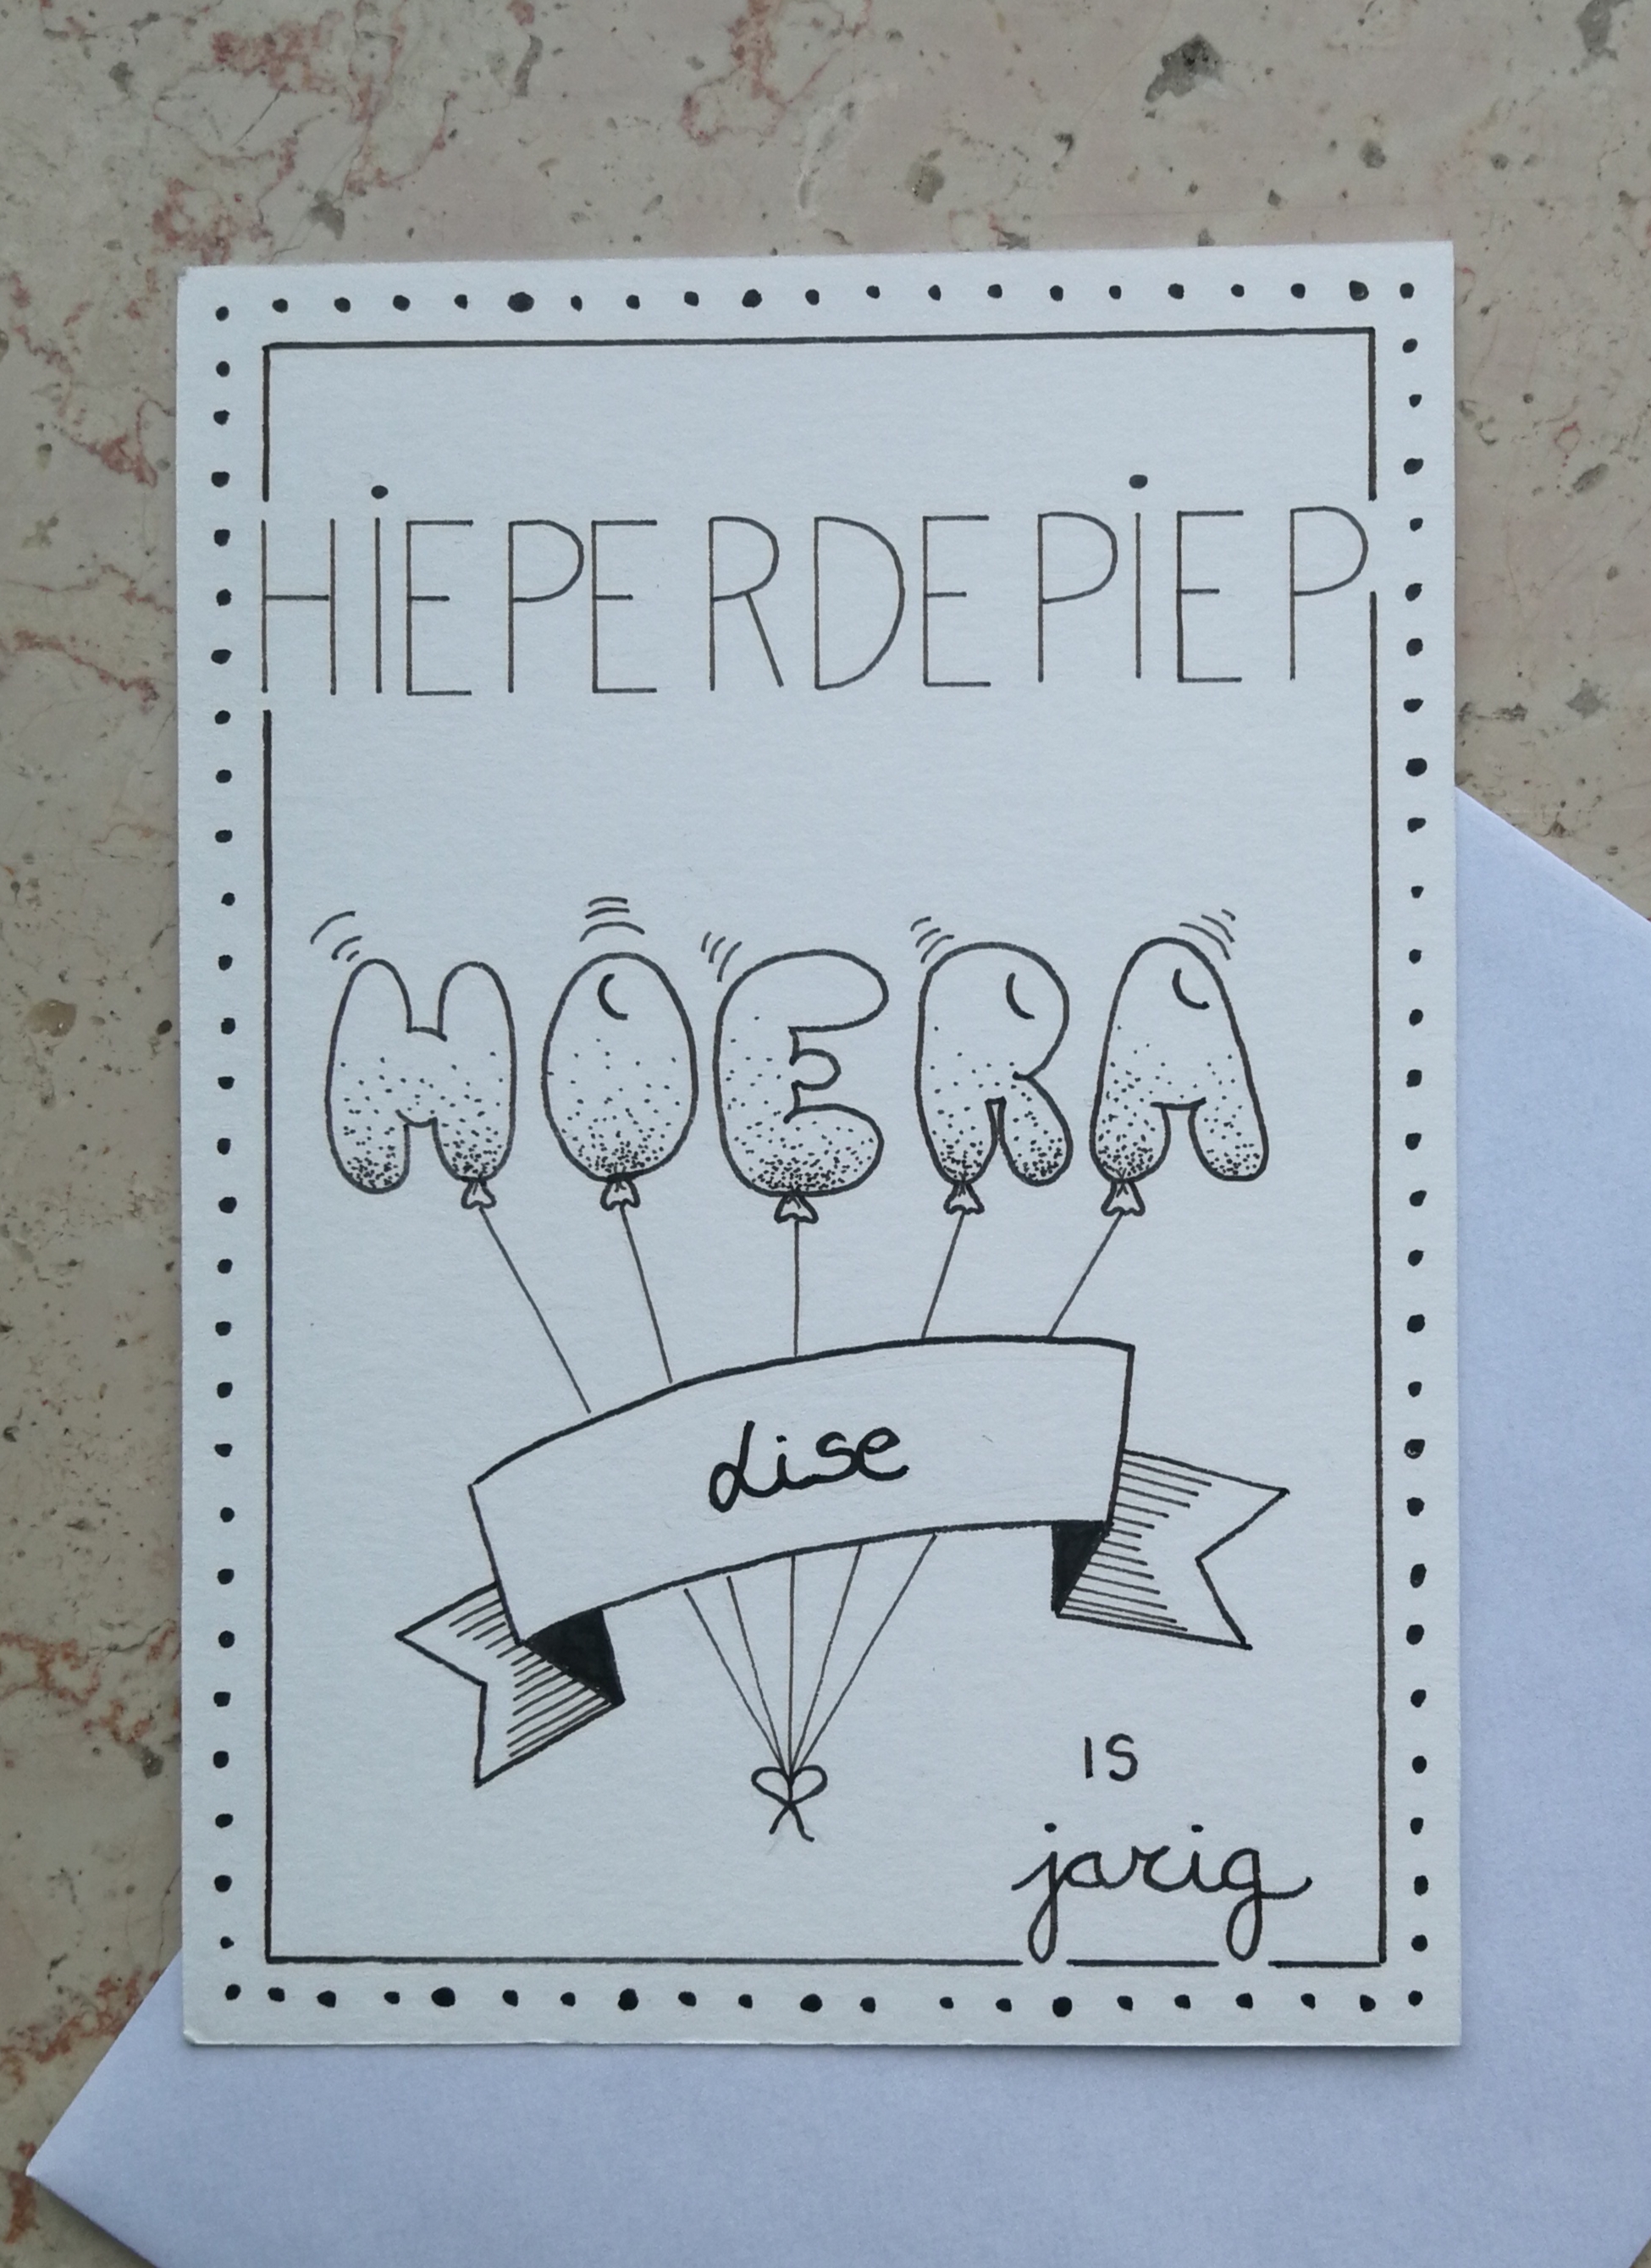 HiEPERDEPiEP
HOERA
Lise
is
jarig